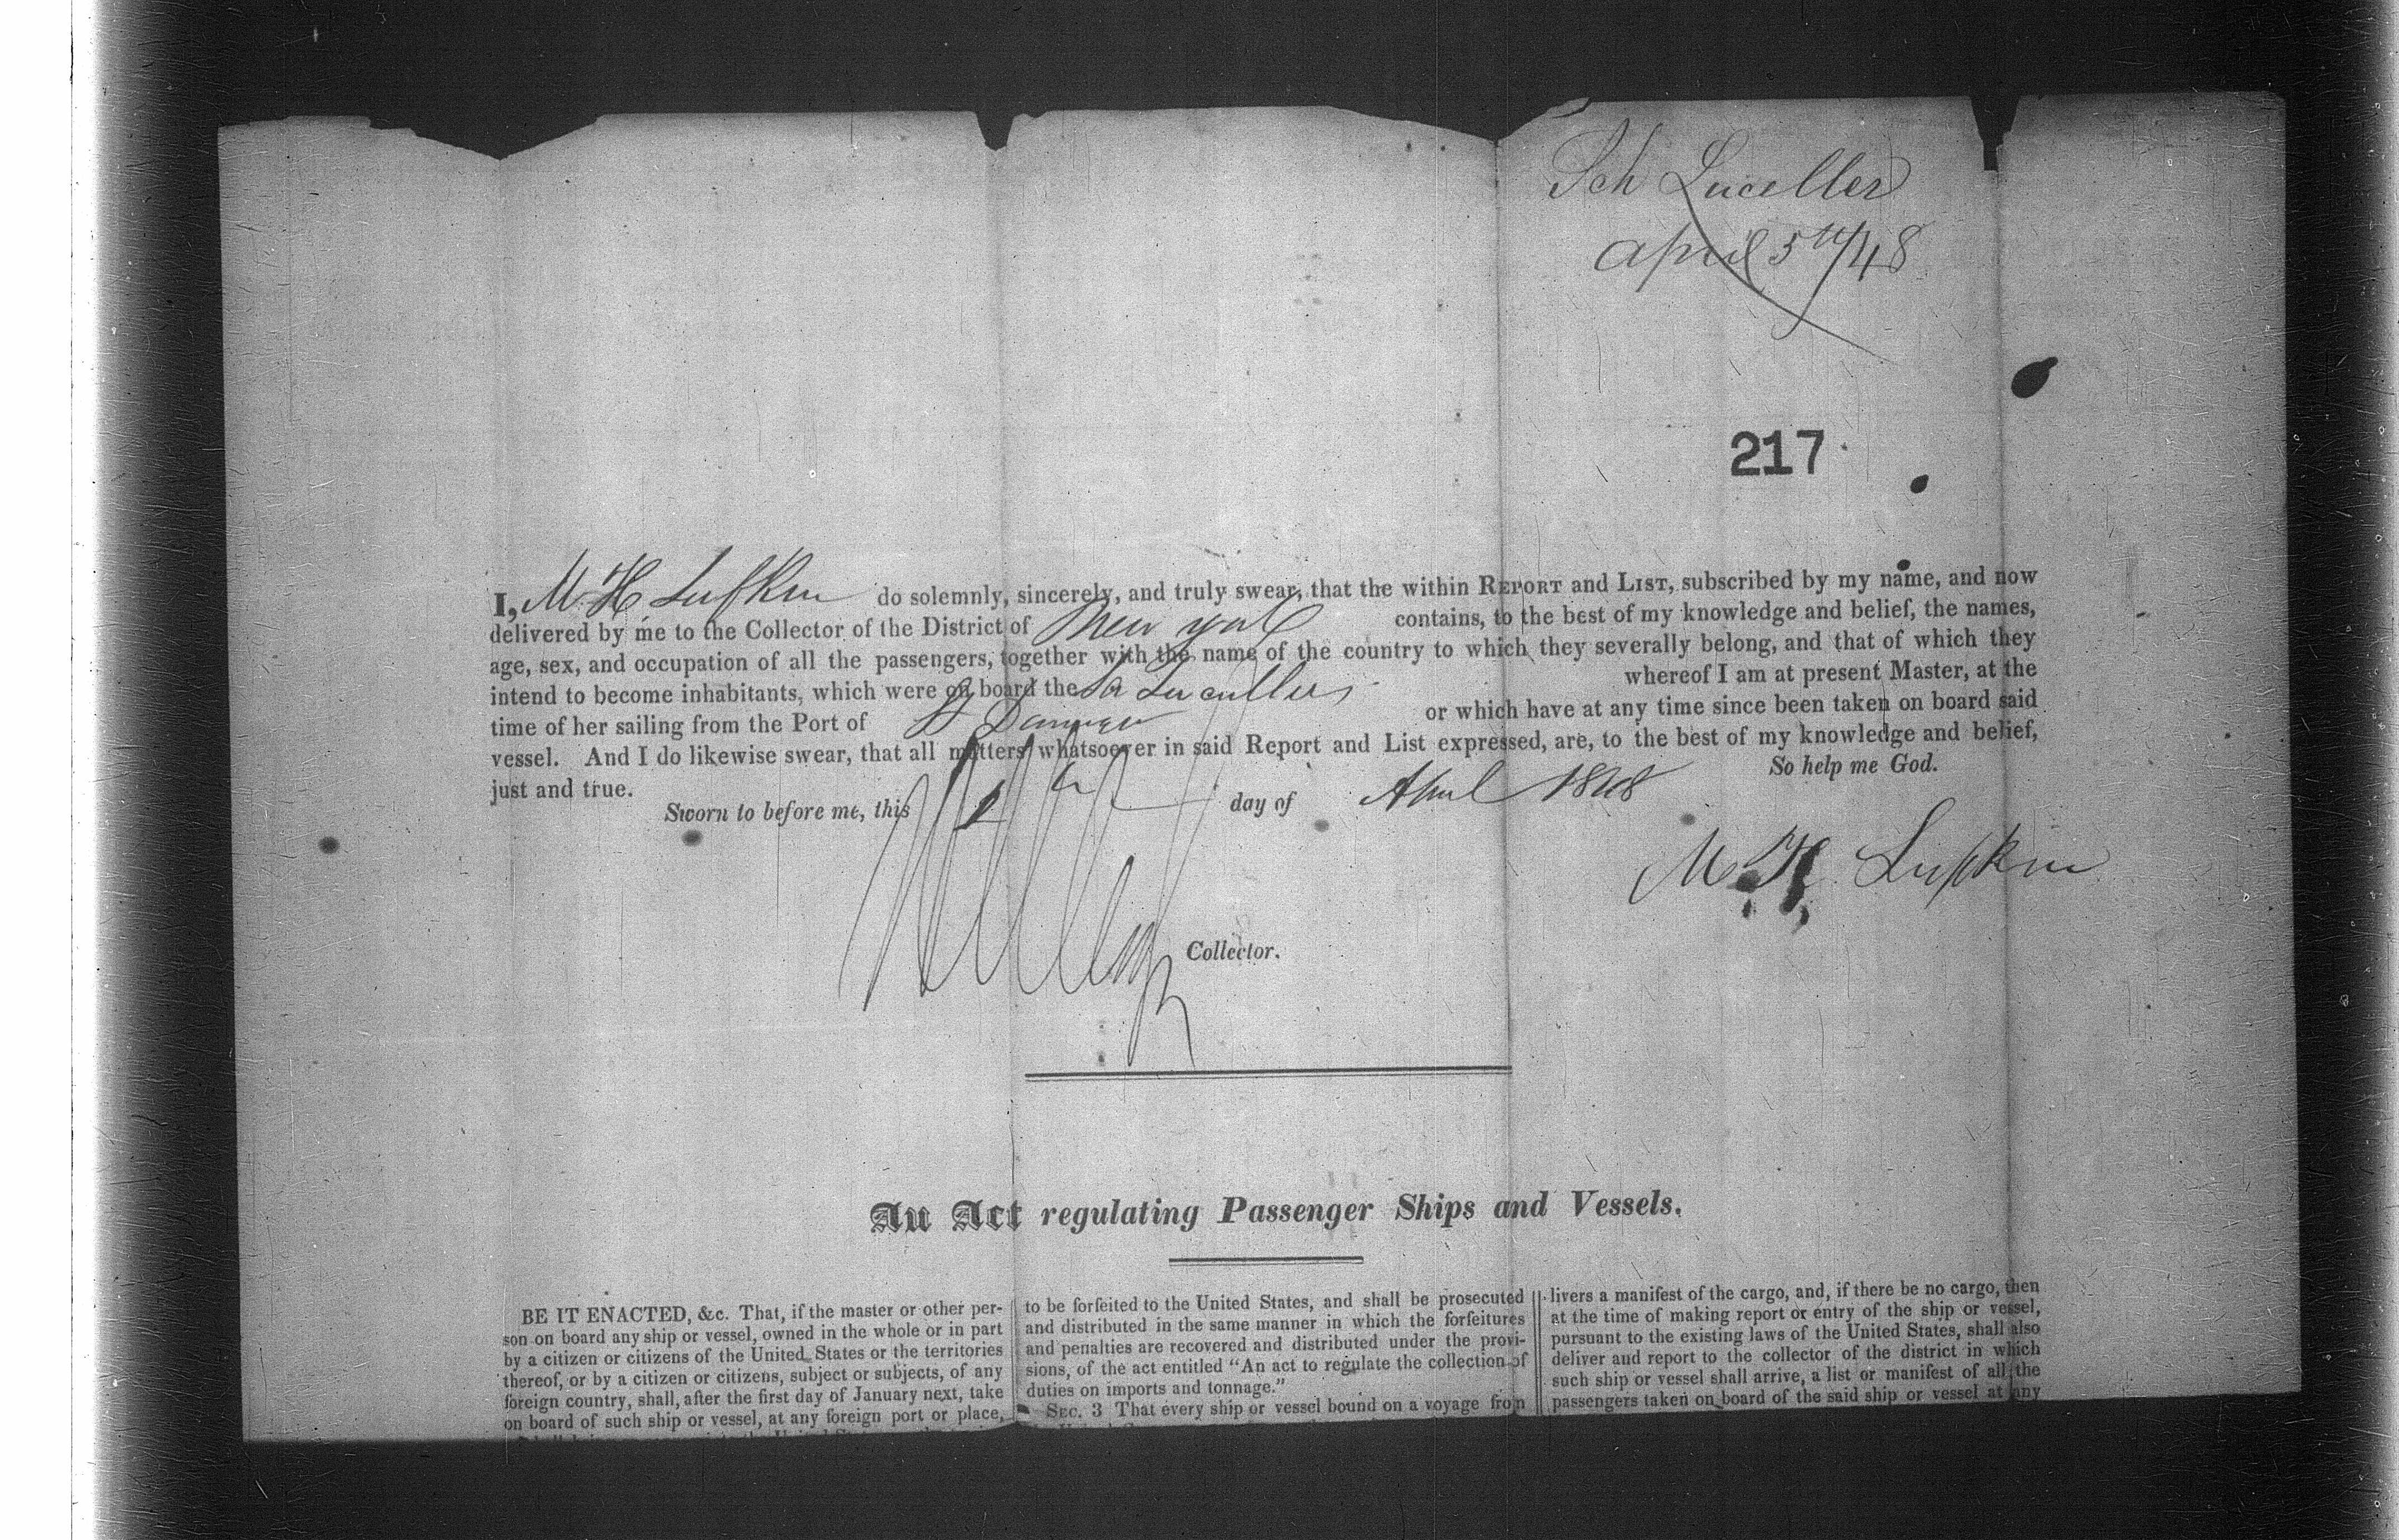 Sch Luculler
April 5th/48
217
I, M H Lufkin do solemnly, sincerely, and truly swear, that the within REPORT and LIST, subscribed by my name, and now
delivered by me to the Collector of the District of New York contains, to the best of my knowledge and belief, the names,
age, sex, and occupation of all the passengers, together with the name of the country to which they severally belong, and that of which they
intend to become inhabitants, which were on board the Lucullus whereof I am at present Master, at the
time of her sailing from the Port of or which have at any time since been taken on board said
vessel. And I do likewise swear, that all matters whatsoever in said Report and List expressed, are, to the best of my knowledge and belief,
just and true. So help me God.
Sworn to before me, this day of April 1848
M H Lufkin
Collector.
An Act regulating Passenger Ships and Vessels.
BE IT ENACTED, &c. That, if the master or other per-
son on board any ship or vessel, owned in the whole or in part
by a citizen or citizens of the United States or the territories
thereof, or by a citizen or citizens, subject or subjects, of any
foreign country, shall, after the first day of January next, take
on board of such ship or vessel, at any foreign port or place,
to be forfeited to the United States, and shall be prosecuted
and distributed in the same manner in which the forfeitures
and penalties are recovered and distributed under the provi-
sions, of the act entitled "An act to regulate the collection of
duties on imports and tonnage."
SEC. 3 That every ship or vessel bound on a voyage from
livers a manifest of the cargo, and, if there be no cargo, then
at the time of making report or entry of the ship or vessel,
pursuant to the existing laws of the United States, shall also
deliver and report to the collector of the district in which
such ship or vessel shall arrive, a list or manifest of all the
passengers taken on board of the said ship or vessel at any